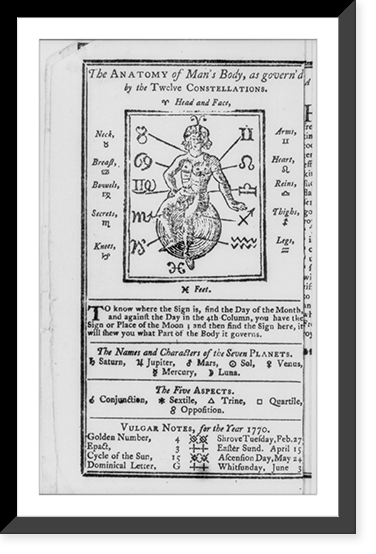 The ANATOMY of Man's Body, as govern'd
by the Twelve CONSTELLATIONS.
♈ Head and Face,
Neck,
♉
Breaſt,
♋
Bowels,
♍
Secrets,
♏
Knees,
♑
Arms,
♊
Heart,
♌
Reins,
♎
Thighs,
♐
Legs,
♒
♓ Feet.
TO know where the Sign is, find the Day of the Month,
and againſt the Day in the 4th Column, you have the
Sign or Place of the Moon ; and then find the Sign here, it
will ſhew you what Part of the Body it governs.
The Names and Characters of the Seven PLANETS.
♄ Saturn, ♃ Jupiter, ♂ Mars, ☉ Sol, ♀ Venus,
☿ Mercury, ☽ Luna.
The Five ASPECTS.
☌ Conjunction, ⚹ Sextile, △ Trine, □ Quartile,
☍ Oppoſition.
VULGAR NOTES, for the Year 1770.
Golden Number, 4 Shrove Tueſday, Feb. 27
Epact, 3 Eaſter Sund. April 15
Cycle of the Sun, 15 Aſcenſion Day, May 24
Dominical Letter, G Whitſunday, June 3